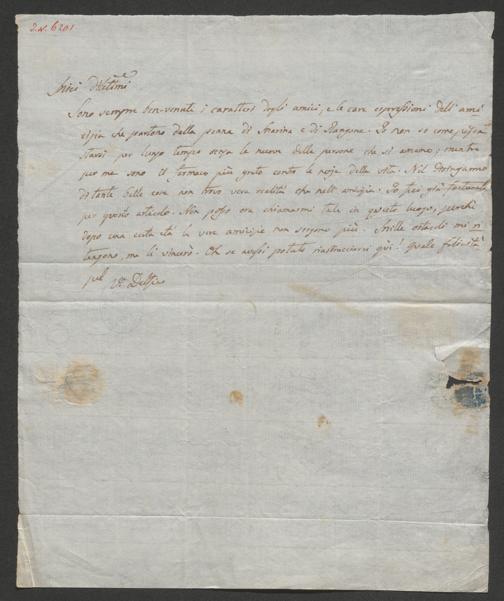 2.N. 6201
Amici Dilettmi
Sono sempre ben-venuti i caratteri degli amici, e le care espressioni dell'ami
cizia che partono della penna di Marina e di
Io non so come possa
starsi per lungo tempo senza le nuove delle persone che si amano; mentre
per me sono il farmaco più grato contro la noja della vita. Nel disinganno
di tante belle cose non trovo vera realtà che nell'amicizia. Io fui già fortunato
per questo articolo. Non posso ora chiamarmi tale in questo luogo, perchè
dopo una certa età le vere amicizie non sorgono più. Mille ostacoli mi ri
tengono, ma li vincerò. Oh se avessi potuto rintracciarvi qui! Quale felicità
pel Vro Delfico